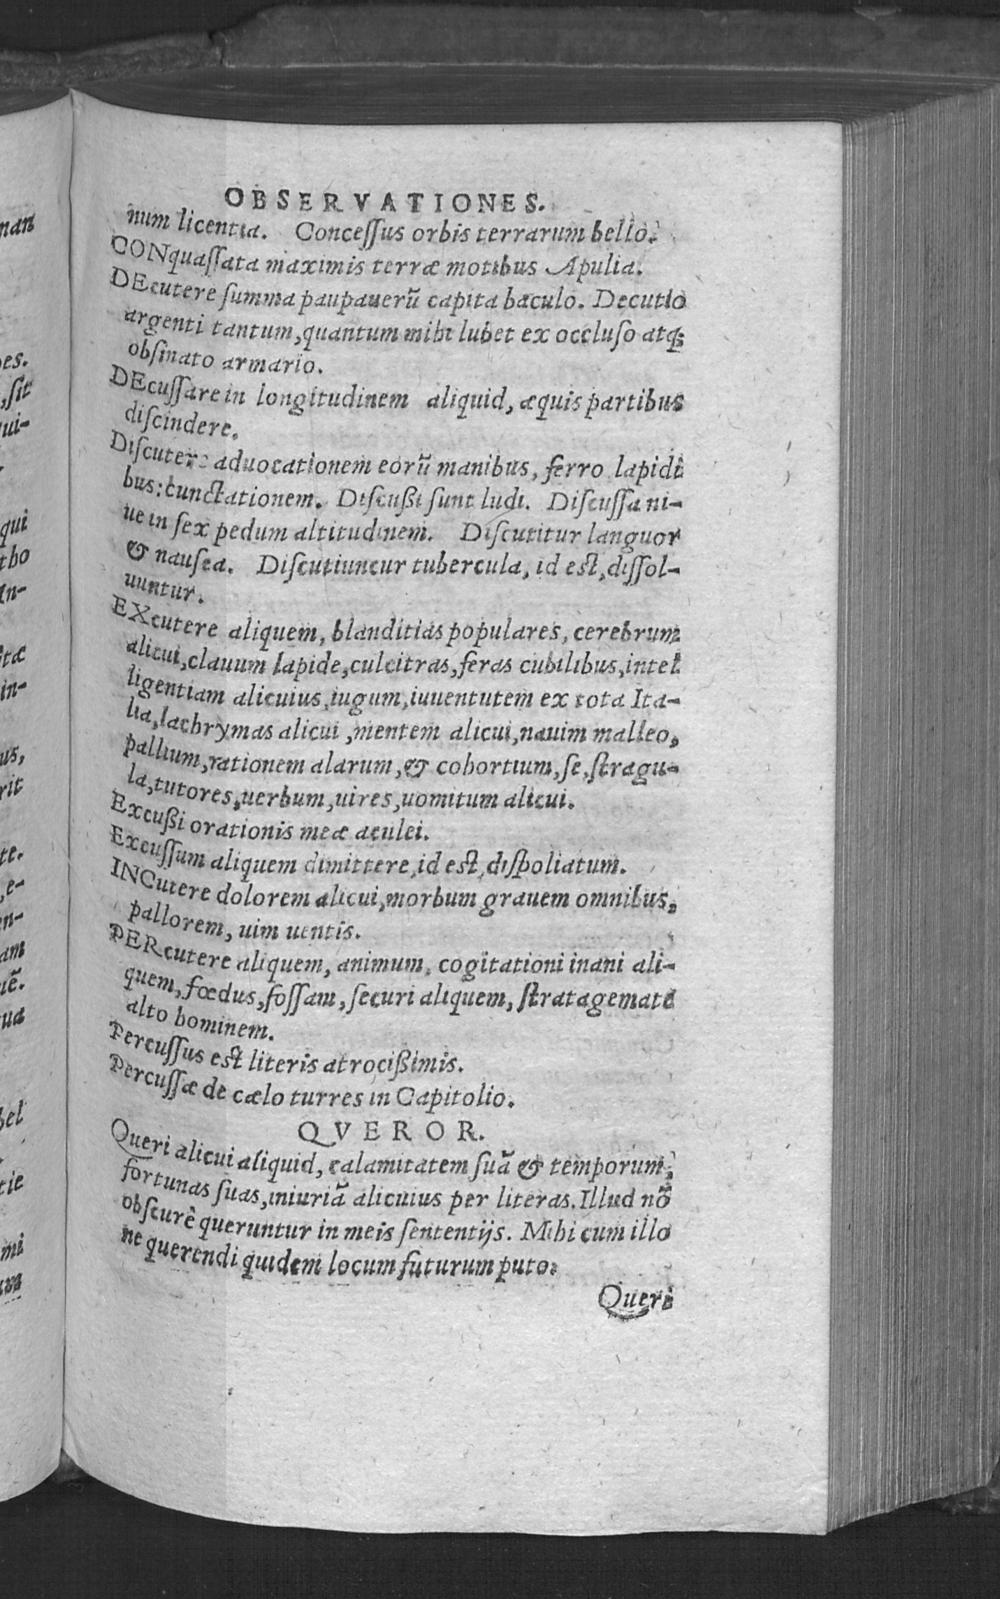 OBSERVATIONES.
num licentia. Concessus orbis terrarum bello.
CONquassata maximis terræ motibus Apulia.
DEcutere summa paupauerū capita baculo. Decutio
argenti tantum, quantum mihi lubet ex occluso atq;
obsinato armario.
DEcussare in longitudinem aliquid, æquis partibus
discindere.
Discutere aduocationem eorū manibus, ferro lapidi
bus: cunctationem. Discußi sunt ludi. Discussa ni-
ue in sex pedum altitudinem. Discutitur languor
& nausea. Discutiuntur tubercula, id est, dissol-
uuntur.
EXcutere aliquem, blanditias populares, cerebrum
alicui, clauum lapide, culcitras, feras cubilibus, intel
ligentiam alicuius, iugum, iuuentutem ex tota Ita-
lia, lachrymas alicui, mentem alicui, nauim malleo,
pallium, rationem alarum, & cohortium, se, stragu-
la, tutores, uerbum, uires, uomitum alicui.
Excußi orationis meæ aculei.
Excussum aliquem dimittere, id est, dispoliatum.
INCutere dolorem alicui, morbum grauem omnibus,
pallorem, uim uentis.
PERcutere aliquem, animum, cogitationi inani ali-
quem, fœdus, fossam, securi aliquem, stratagemate
alto hominem.
Percussus est literis atrocißimis.
Percussæ de cælo turres in Capitolio.
QVEROR.
Queri alicui aliquid, calamitatem suā & temporum,
fortunas suas, iniuriā alicuius per literas. Illud nō
obscurè queruntur in meis sententijs. Mihi cum illo
ne querendi quidem locum futurum puto.
Queri
nan
es.
, sit
ui-
qui
tho
In-
itæ
in-
us,
rit
te.
, e-
en-
am
iē.
ua
bel
tie
mi